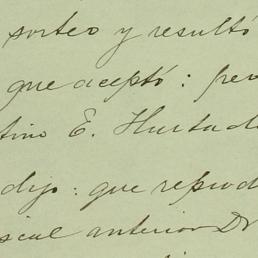 sorteo y resultó
que aceptó: per
tino E. Hurtad
dijo: que reprod
scal anterior Dr